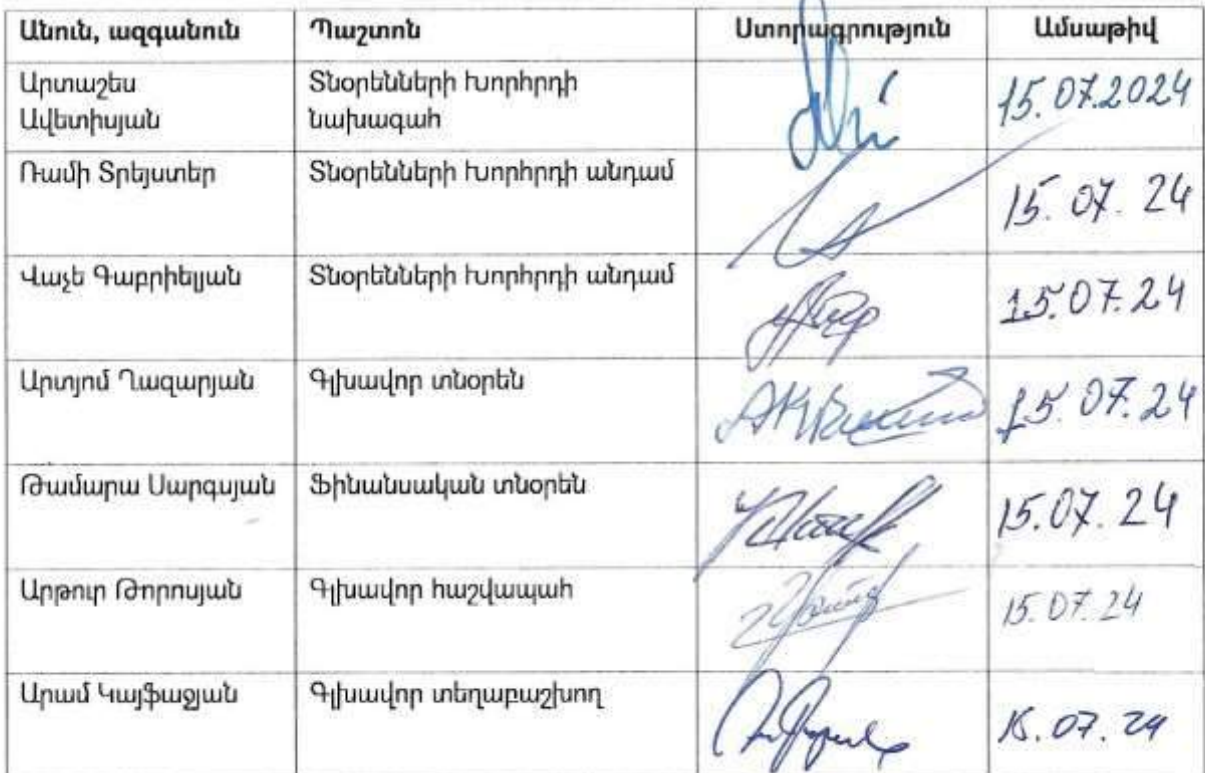 Անուն, ազգանուն Պաշտոն Ստորագրություն Ամսաթիվ
Արտաշես Տնօրենների Խորհրդի 15.07.2024
Ավետիսյան նախագահ
Ռամի Տրեյստեր Տնօրենների Խորհրդի անդամ 15.07.24
Վաչե Գաբրիելյան Տնօրենների Խորհրդի անդամ 15.07.24
Արտյոմ Ղազարյան Գլխավոր տնօրեն 15.07.24
Թամարա Սարգսյան Ֆինանսական տնօրեն 15.07.24
Արթուր Թորոսյան Գլխավոր հաշվապահ 15.07.24
Արամ Կայֆաջյան Գլխավոր տեղաբաշխող 15.07.24